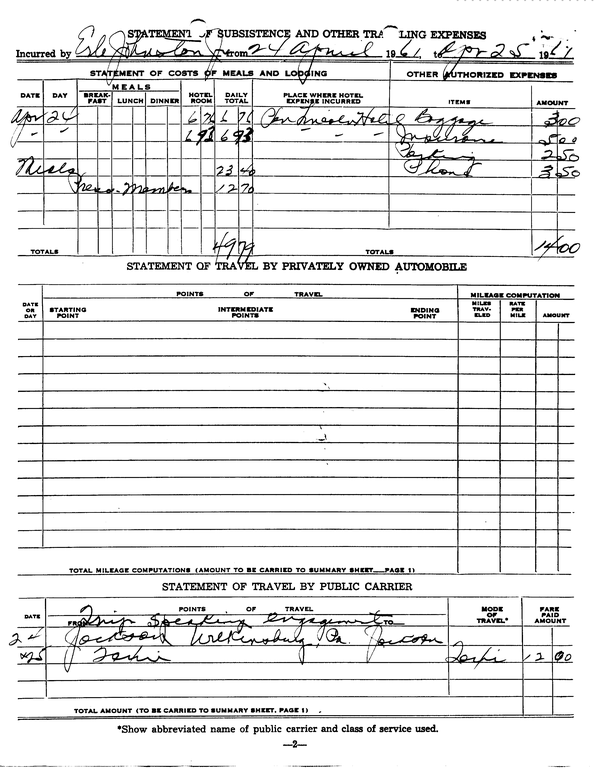 STATEMENT OF SUBSISTENCE AND OTHER TRA LING EXPENSES
Incurred by Erle Johnston Jr from 24 April 1961, to Apr 25 1961
STATEMENT OF COSTS OF MEALS AND LODGING OTHER AUTHORIZED EXPENSES
MEALS
DATE DAY BREAK-FAST LUNCH DINNER HOTEL ROOM DAILY TOTAL PLACE WHERE HOTEL EXPENSE INCURRED ITEMS AMOUNT
Apr 24 6 76 6 76 Penn Lincoln Hotel Baggage 3 00
" " 6 93 6 93 " " " 5 00
Parking 2 50
Meals 23 40 Phone 3 50
Members 12 70
TOTALS 49 79 TOTALS 14 00
STATEMENT OF TRAVEL BY PRIVATELY OWNED AUTOMOBILE
POINTS OF TRAVEL MILEAGE COMPUTATION
DATE OR DAY STARTING POINT INTERMEDIATE POINTS ENDING POINT MILES TRAV-ELED RATE PER MILE AMOUNT
TOTAL MILEAGE COMPUTATIONS (AMOUNT TO BE CARRIED TO SUMMARY SHEET—PAGE 1)
STATEMENT OF TRAVEL BY PUBLIC CARRIER
DATE POINTS OF TRAVEL MODE OF TRAVEL* FARE PAID AMOUNT
FROM Trip Speaking engagement TO
24 Jackson Wilkinsburg, Pa. Jackson
25 Taxi Taxi 12 00
TOTAL AMOUNT (TO BE CARRIED TO SUMMARY SHEET, PAGE 1)
*Show abbreviated name of public carrier and class of service used.
—2—